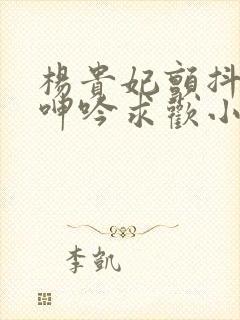 楊貴妃顫抖
呻吟求歡小
李凱